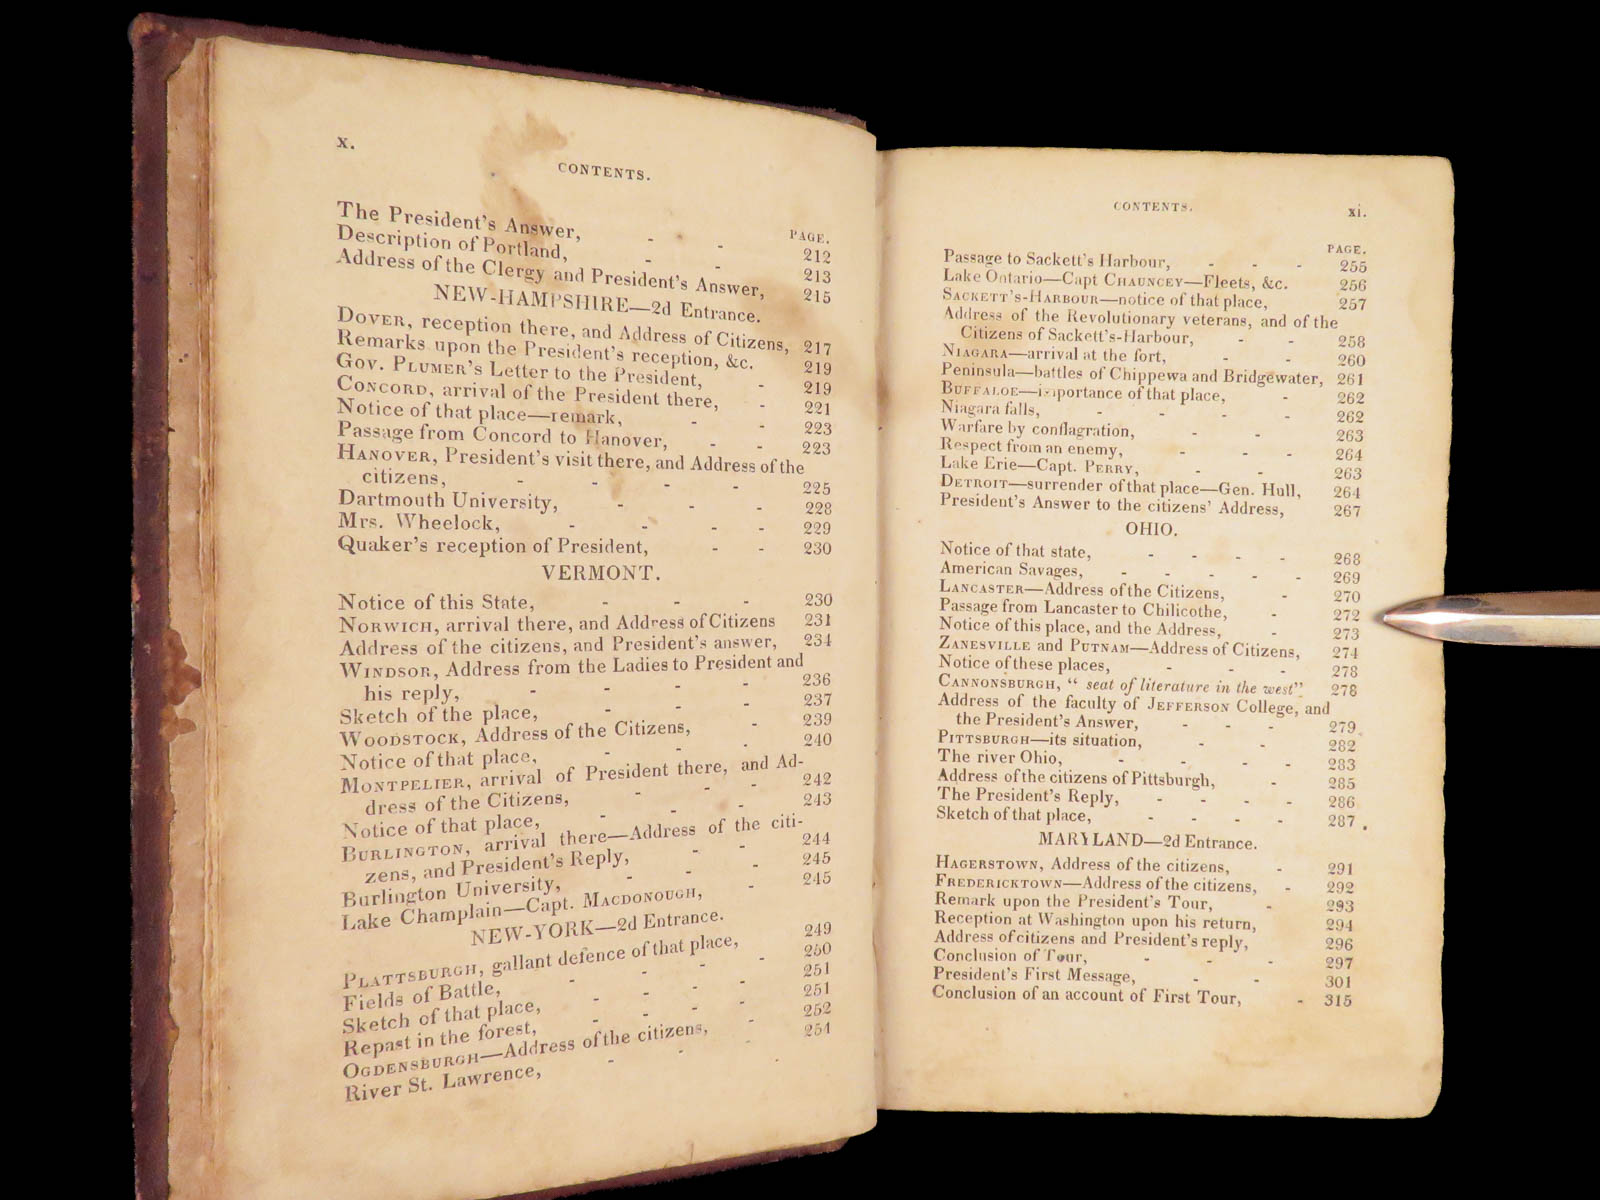 x.
CONTENTS.
PAGE.
The President's Answer, - - 212
Description of Portland, - - 213
Address of the Clergy and President's Answer, 215
NEW-HAMPSHIRE—2d Entrance.
DOVER, reception there, and Address of Citizens, 217
Remarks upon the President's reception, &c. 219
Gov. PLUMER's Letter to the President, - 219
CONCORD, arrival of the President there, - 221
Notice of that place—remark, - - 223
Passage from Concord to Hanover, - - 223
HANOVER, President's visit there, and Address of the
citizens, - - - - 225
Dartmouth University, - - - 228
Mrs. Wheelock, - - - - 229
Quaker's reception of President, - - 230
VERMONT.
Notice of this State, - - - 230
NORWICH, arrival there, and Address of Citizens 231
Address of the citizens, and President's answer, 234
WINDSOR, Address from the Ladies to President and
his reply, - - - - 236
Sketch of the place, - - - 237
WOODSTOCK, Address of the Citizens, - 239
Notice of that place, - - - 240
MONTPELIER, arrival of President there, and Ad-
dress of the Citizens, - - - 242
Notice of that place, - - - 243
BURLINGTON, arrival there—Address of the citi-
zens, and President's Reply, - - 244
Burlington University, - - - 245
Lake Champlain—Capt. MACDONOUGH, - 245
NEW-YORK—2d Entrance.
PLATTSBURGH, gallant defence of that place, 249
Fields of Battle, - - - - 250
Sketch of that place, - - - 251
Repast in the forest, - - - 251
OGDENSBURGH—Address of the citizens, - 252
River St. Lawrence, - - - 254
CONTENTS. xi.
PAGE.
Passage to Sackett's Harbour, - - - 255
Lake Ontario—Capt CHAUNCEY—Fleets, &c. 256
SACKETT's-HARBOUR—notice of that place, 257
Address of the Revolutionary veterans, and of the
Citizens of Sackett's-Harbour, - - 258
NIAGARA—arrival at the fort, - - 260
Peninsula—battles of Chippewa and Bridgewater, 261
BUFFALOE—importance of that place, - 262
Niagara falls, - - - - 262
Warfare by conflagration, - - 263
Respect from an enemy, - - - 264
Lake Erie—Capt. PERRY, - - 263
DETROIT—surrender of that place—Gen. Hull, 264
President's Answer to the citizens' Address, 267
OHIO.
Notice of that state, - - - - 268
American Savages, - - - - - 269
LANCASTER—Address of the Citizens, - 270
Passage from Lancaster to Chilicothe, - 272
Notice of this place, and the Address, - 273
ZANESVILLE and PUTNAM—Address of Citizens, 274
Notice of these places, - - - 278
CANNONSBURGH, " seat of literature in the west" 278
Address of the faculty of JEFFERSON College, and
the President's Answer, - - - 279
PITTSBURGH—its situation, - - 282
The river Ohio, - - - - 283
Address of the citizens of Pittsburgh, - 285
The President's Reply, - - - - 286
Sketch of that place, - - - - 287
MARYLAND—2d Entrance.
HAGERSTOWN, Address of the citizens, - 291
FREDERICKTOWN—Address of the citizens, - 292
Remark upon the President's Tour, - 293
Reception at Washington upon his return, 294
Address of citizens and President's reply, 296
Conclusion of Tour, - - - 297
President's First Message, - - 301
Conclusion of an account of First Tour, - 315